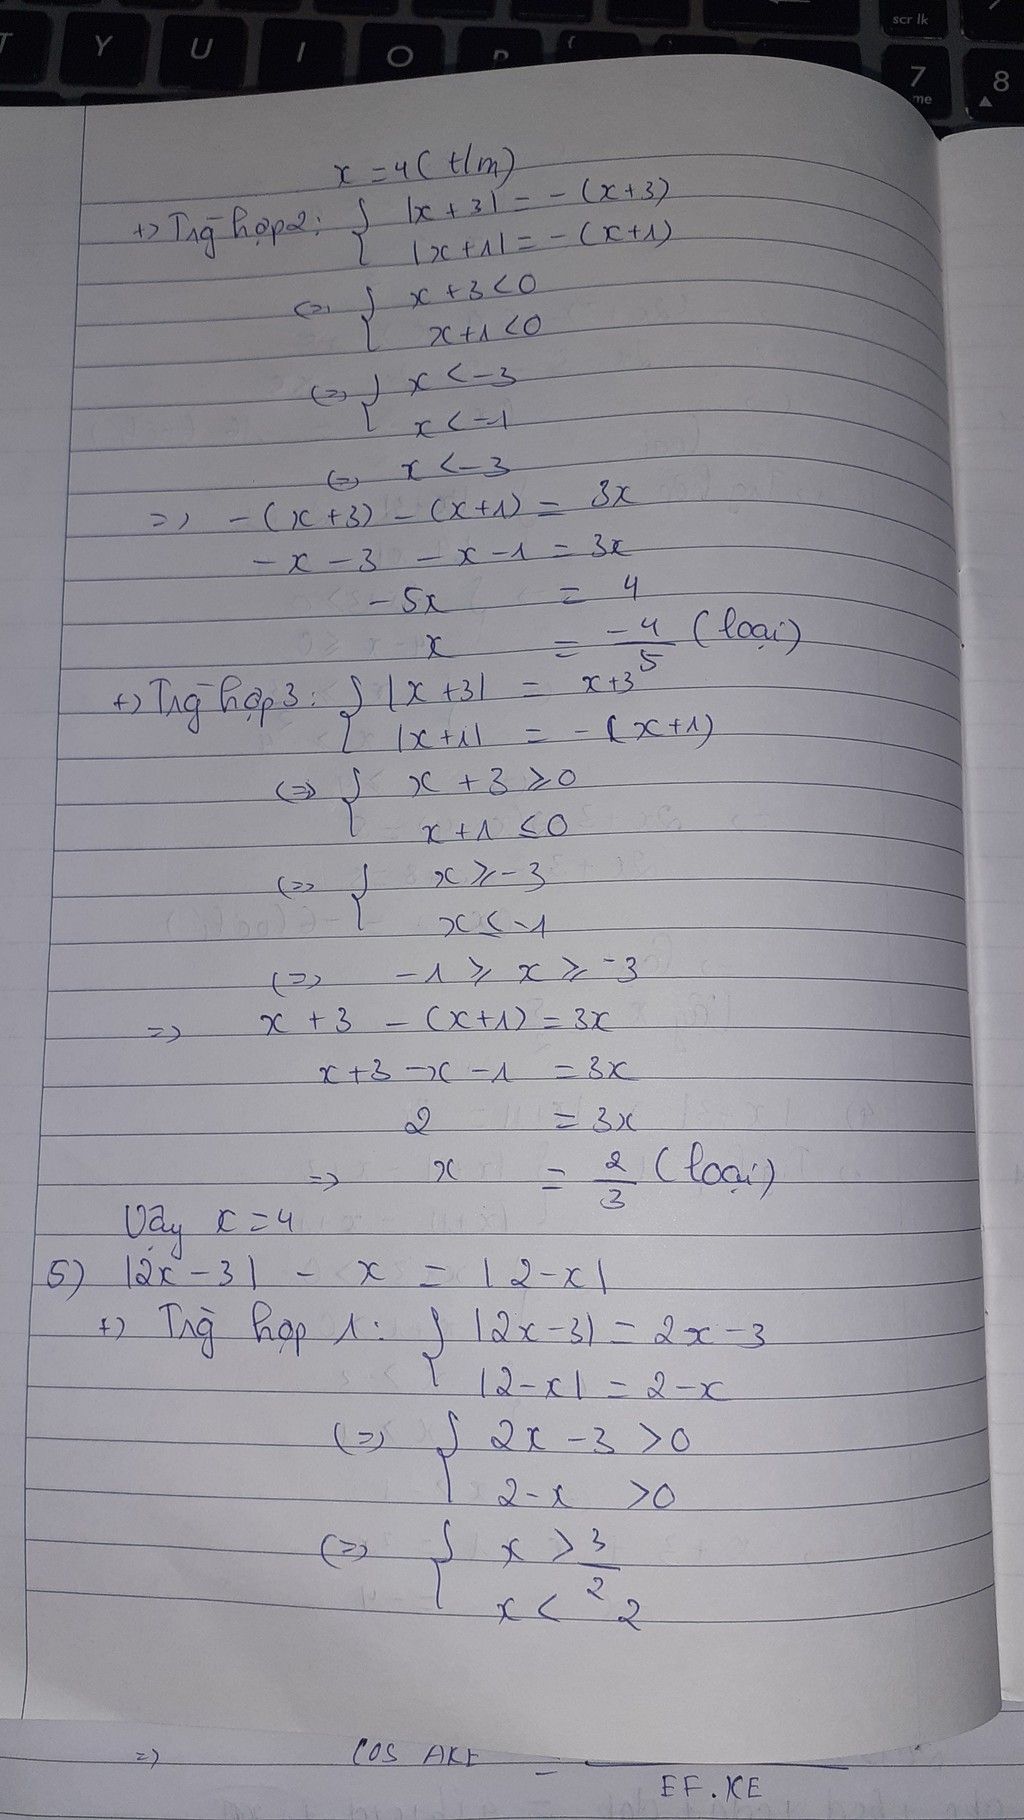 T Y U I O P {
scr lk
7 me 8
x = 4 ( t/m)
+) Trg hợp 2: { |x + 3| = - (x+3)
|x+1| = - (x+1)
<=> { x + 3 < 0
x+1 < 0
<=> { x < -3
x < -1
<=> x < -3
=> - (x+3) - (x+1) = 3x
- x - 3 - x - 1 = 3x
- 5x = 4
x = -4/5 (loại)
+) Trg hợp 3: { |x +3| = x+3
|x+1| = - (x+1)
<=> { x + 3 ⩾ 0
x+1 ≤ 0
<=> { x ⩾ -3
x ≤ -1
<=> -1 ⩾ x ⩾ -3
=> x + 3 - (x+1) = 3x
x+3 - x - 1 = 3x
2 = 3x
=> x = 2/3 (loại)
Vậy x = 4
5) |2x - 3| - x = |2-x|
+) Trg hợp 1: { |2x-3| = 2x-3
|2-x| = 2-x
<=> { 2x - 3 > 0
2-x > 0
<=> { x > 3/2
x < 2
=> COS AKE =
EF.KE